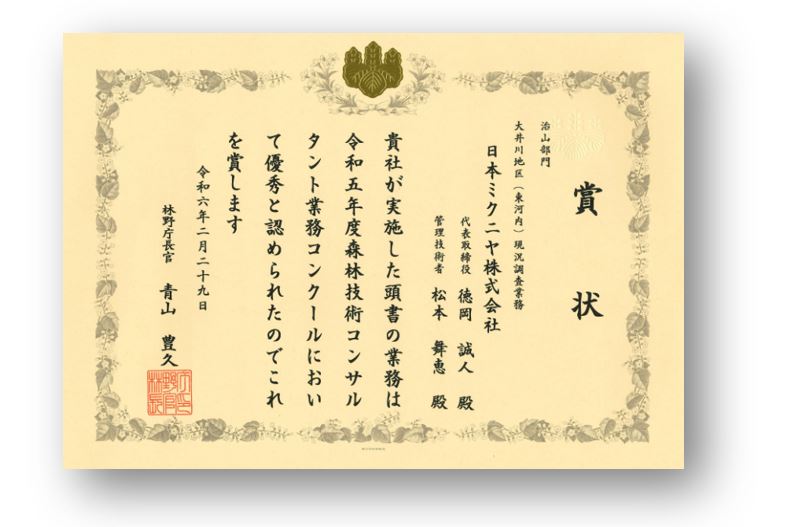 賞状
治山部門
大井川地区（東河内）現況調査業務
日本ミクニヤ株式会社
代表取締役 徳岡 誠人 殿
管理技術者 松本 舞恵 殿
貴社が実施した頭書の業務は
令和五年度森林技術コンサル
タント業務コンクールにおい
て優秀と認められたのでこれ
を賞します
令和六年二月二十九日
林野庁長官 青山 豊久